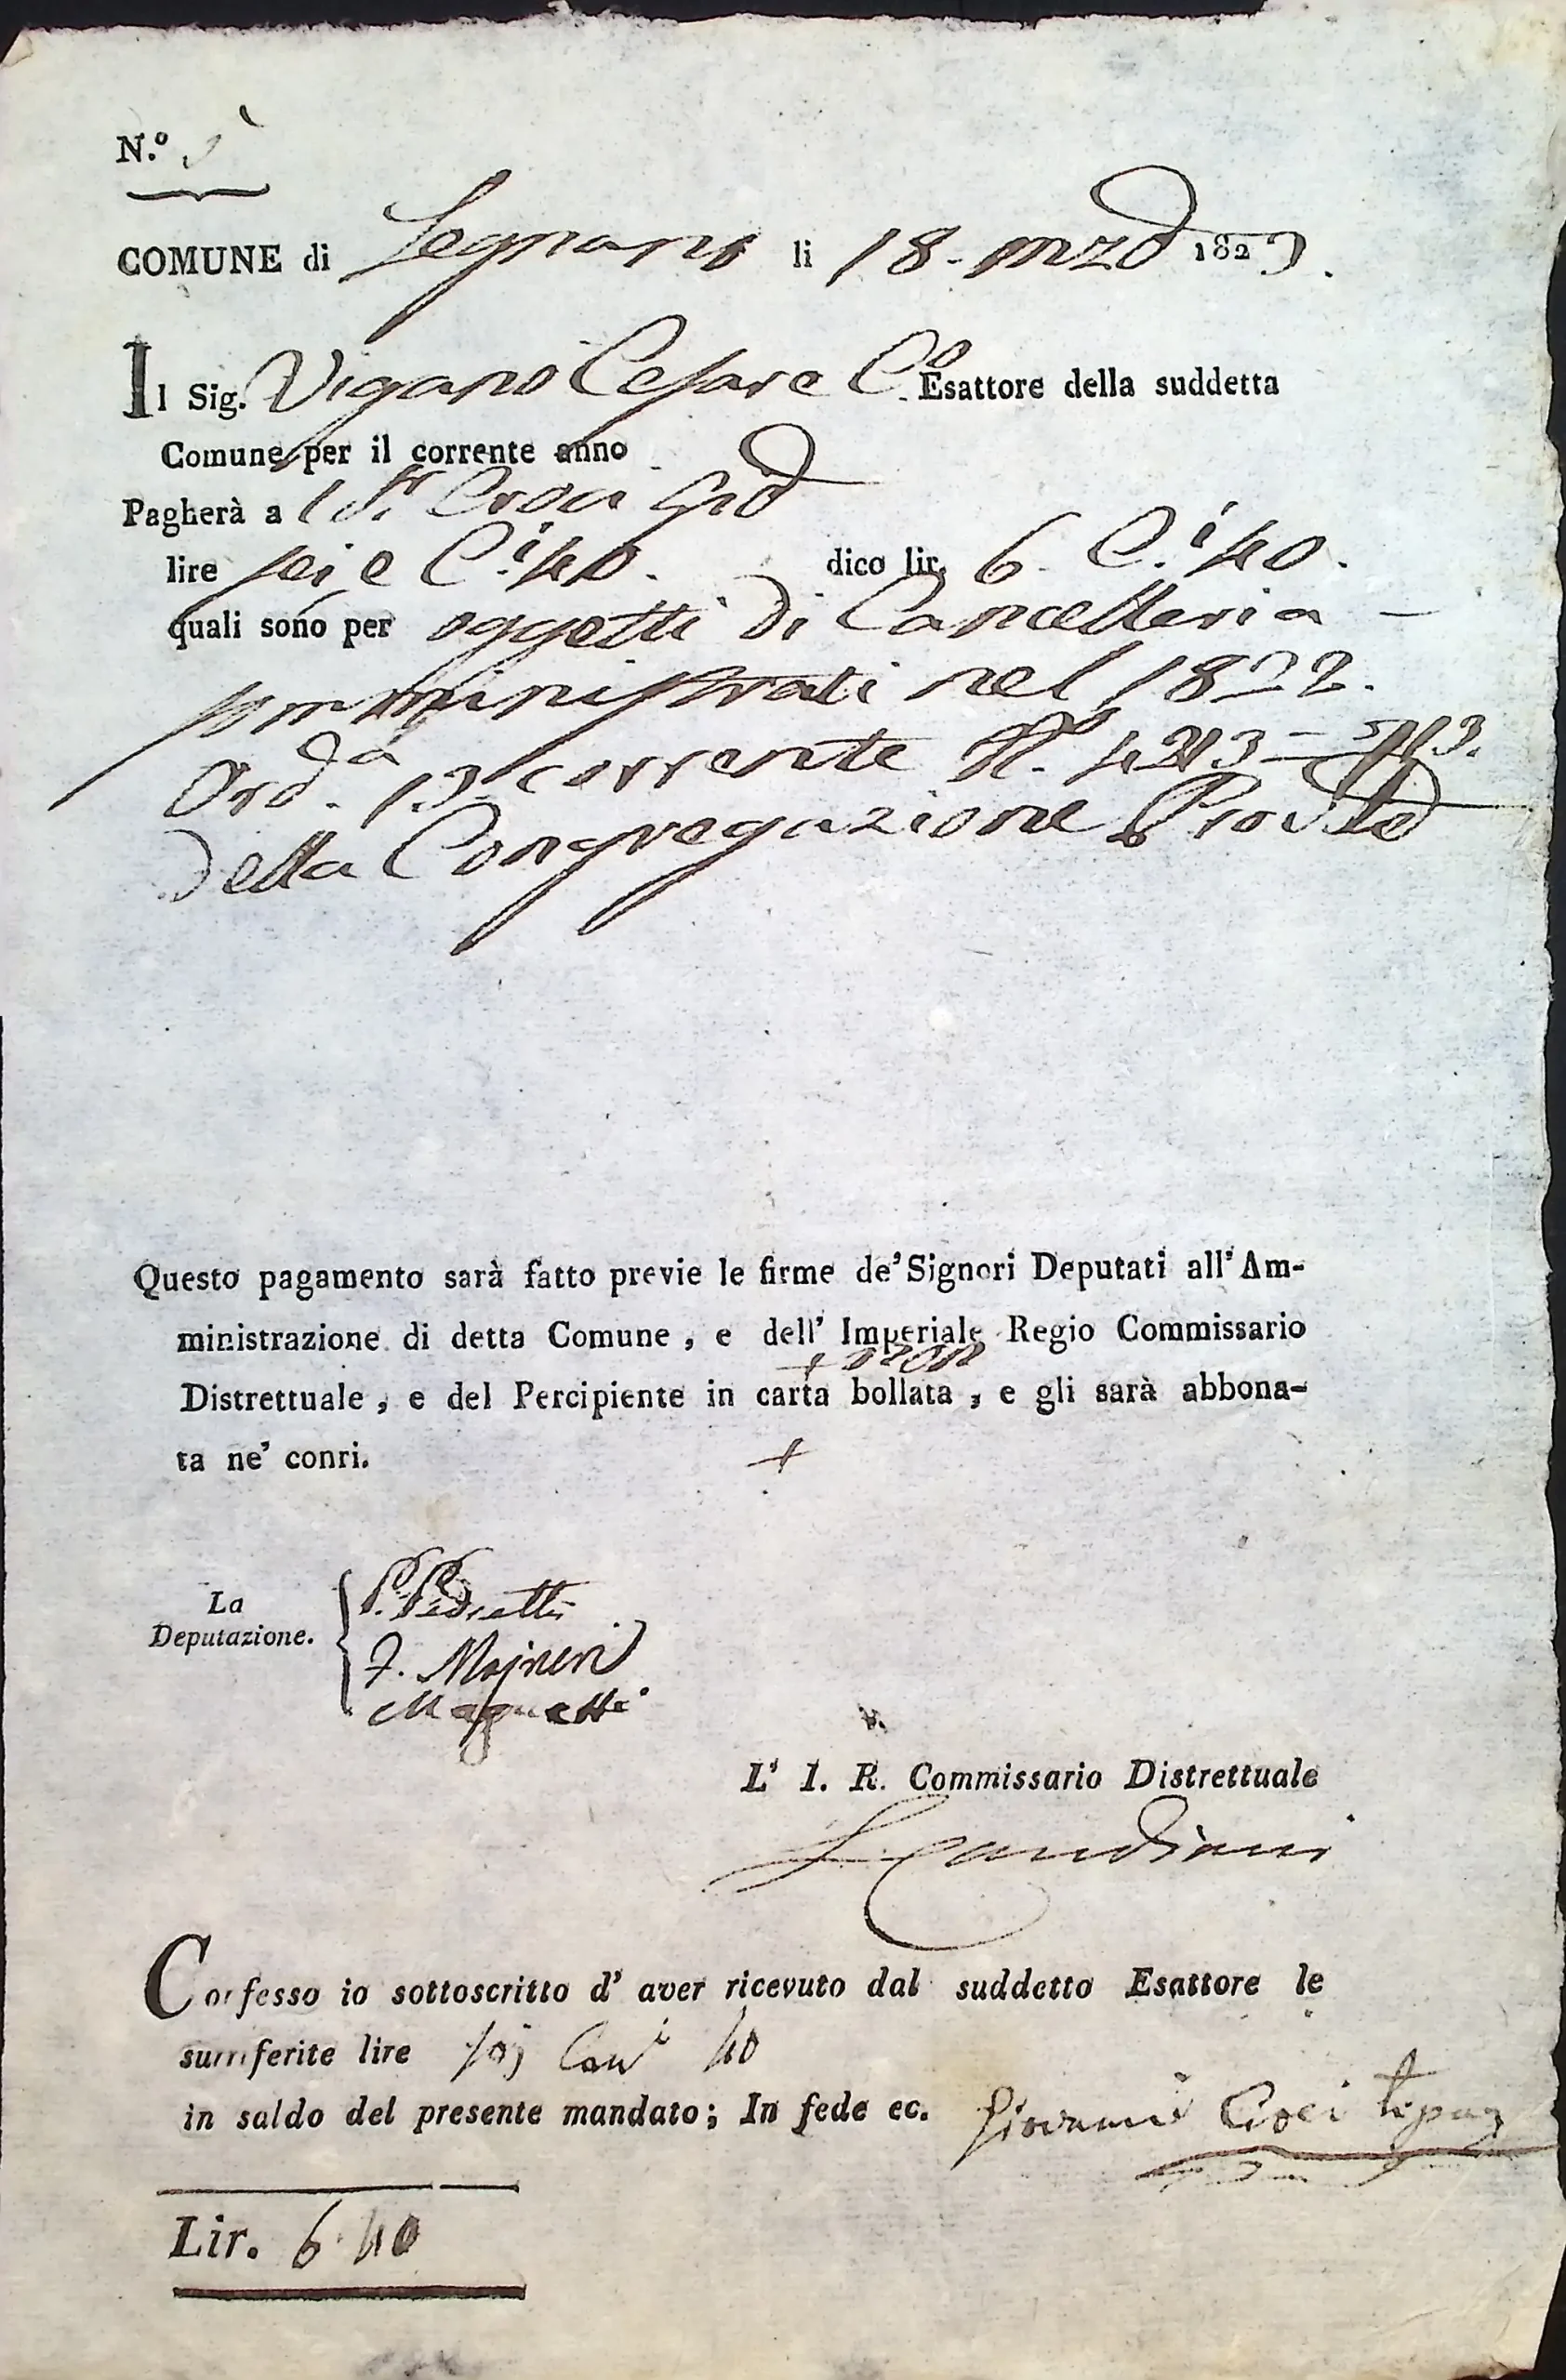 N.º
COMUNE di Legnano li 18. mzo 1823.
Il Sig. Vigano Cesare C.º Esattore della suddetta
Comune per il corrente anno
Pagherà a l Sr. Croci Gio
lire sei e C.i 40. dico lir. 6. C.i 40.
quali sono per oggetti di Cancelleria -
somministrati nel 1822.
Ord.a 13 corrente N.º
della Congregazione Prov.le
Questo pagamento sarà fatto previe le firme de' Signori Deputati all' Am-
ministrazione di detta Comune, e dell' Imperiale Regio Commissario
+
Distrettuale, e del Percipiente in carta bollata, e gli sarà abbona-
ta ne' conri.
+
La
Deputazione.
P. Pedretti
F. Majneri
Magnetti
L' I. R. Commissario Distrettuale
Candiani
Confesso io sottoscritto d' aver ricevuto dal suddetto Esattore le
surriferite lire sej Cent.i 40
in saldo del presente mandato; In fede ec. Giovanni Croci
Lir. 6. 40